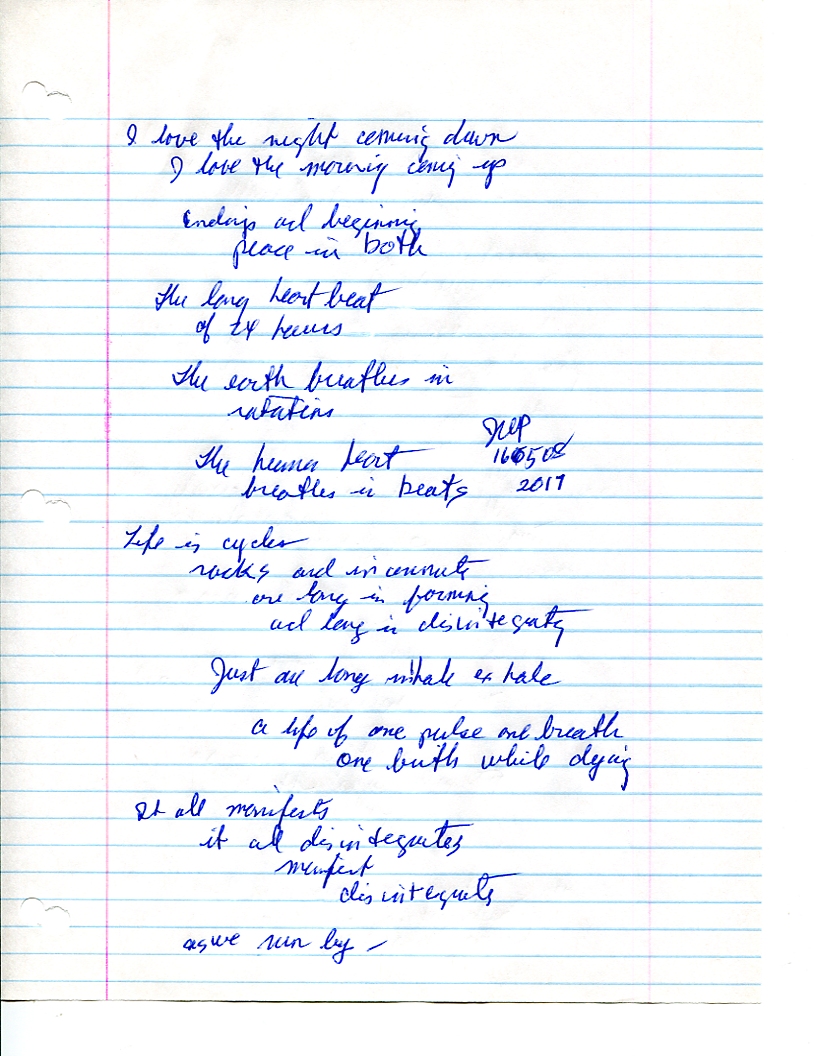 I love the night coming down
I love the morning coming up
Endings and beginning
peace in both
The long heart beat
of 24 hours
The earth breathes in
rotations
The human heart
breathes in beats
2017
Life is cycles
rocks and in
are long in forming
and long in disintegrating
Just one long inhale exhale
a life of one pulse one breath
one birth while dying
It all manifests
it all disintegrates
manifest
disintegrate
as we run by –